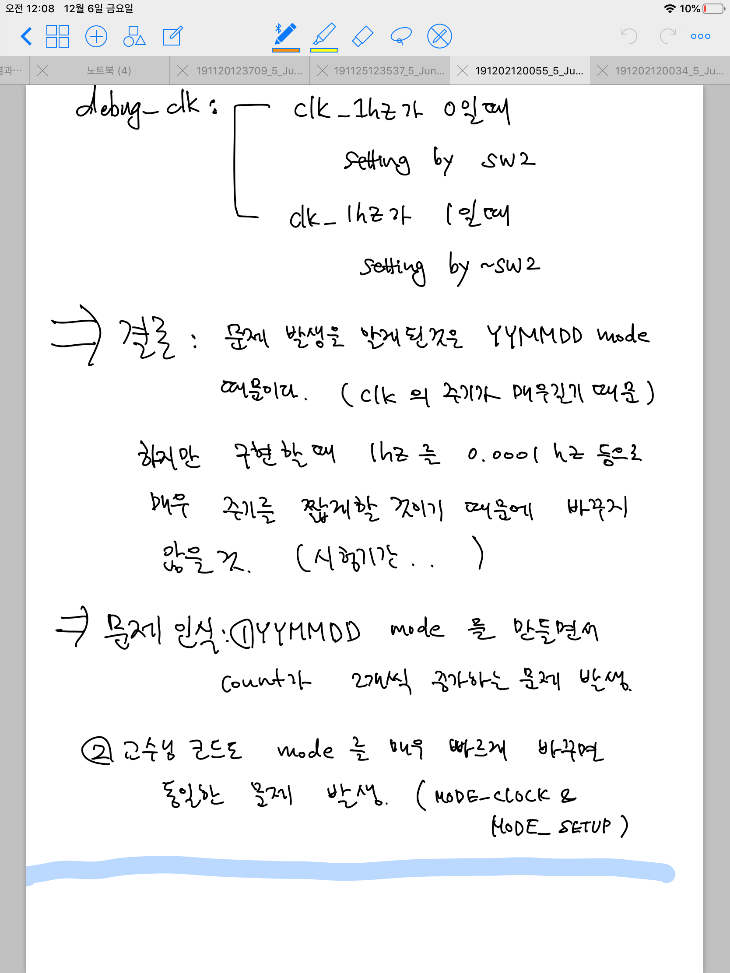 오전 12:08 12월 6일 금요일
10%
결과…
노트북 (4)
191120123709_5_Ju…
191125123537_5_Jun…
191202120055_5_Ju…
191202120034_5_Ju…
debug_clk : clk_1hz가 0일때
setting by SW2
clk_1hz가 1일때
setting by ~SW2
⇒ 결론 : 문제 발생을 알게된것은 YYMMDD mode
때문이다. (clk의 주기가 매우길기 때문)
하지만 구현할때 1hz를 0.0001hz 등으로
매우 주기를 짧게할 것이기 때문에 바꾸지
않을것. (시험기간..)
⇒ 문제 인식 : ① YYMMDD mode 를 만들면서
count가 2개씩 증가하는 문제 발생.
② 교수님 코드도 mode 를 매우 빠르게 바꾸면
동일한 문제 발생. (MODE_CLOCK &
MODE_SETUP)